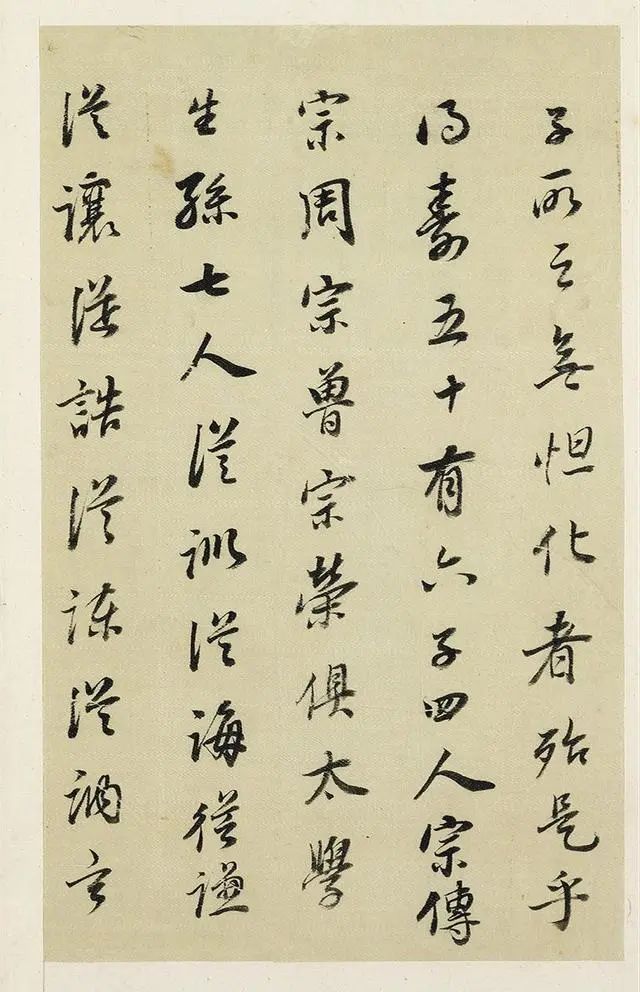 子所云無怛化者殆是乎
得壽五十有六子四人宗傳
宗周宗魯宗榮俱太學
生孫七人從訓從誨從謙
從讓從誥從諫從調